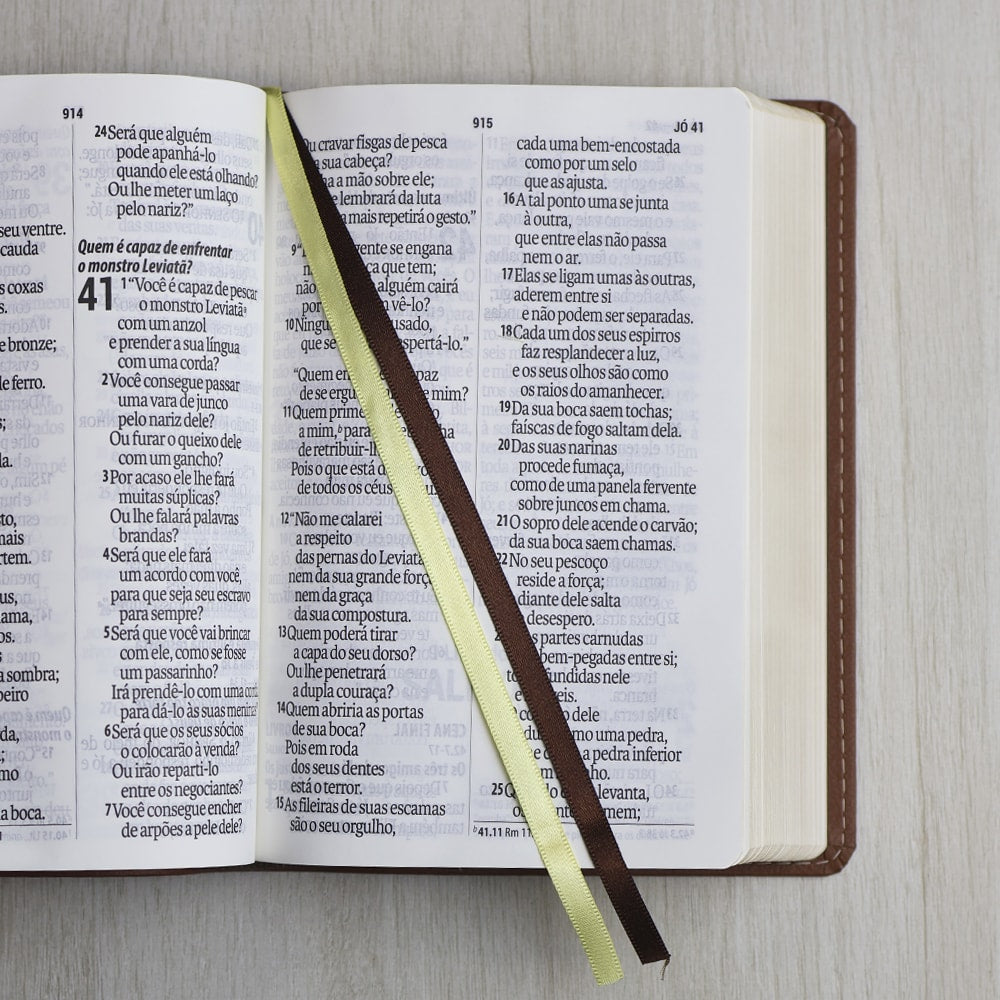 914
seu ventre.
cauda
s coxas
s.
e bronze;
le ferro.
s;
la.
sto,
nais
rtem.
us,
ama,
os.
a sombra;
beiro
da,
;
mo
a boca.
24 Será que alguém
pode apanhá-lo
quando ele está olhando?
Ou lhe meter um laço
pelo nariz?”
Quem é capaz de enfrentar
o monstro Leviatã?
41 1 “Você é capaz de pescar
o monstro Leviatã a
com um anzol
e prender a sua língua
com uma corda?
2 Você consegue passar
uma vara de junco
pelo nariz dele?
Ou furar o queixo dele
com um gancho?
3 Por acaso ele lhe fará
muitas súplicas?
Ou lhe falará palavras
brandas?
4 Será que ele fará
um acordo com você,
para que seja seu escravo
para sempre?
5 Será que você vai brincar
com ele, como se fosse
um passarinho?
Irá prendê-lo com uma
para dá-lo às suas
6 Será que os seus sócios
o colocarão à venda?
Ou irão reparti-lo
entre os negociantes?
7 Você consegue encher
de arpões a pele dele?
915
JÓ 41
cravar fisgas de pesca
sua cabeça?
a mão sobre ele;
lembrará da luta
mais repetirá o gesto.”
9 se engana
que tem;
não alguém cairá
vê-lo?
10 usado,
que se
“Quem
de mim?
11 Quem
a mim, b para
de
Pois o que está
de todos os céus
12 “Não me calarei
a respeito
das pernas do Leviatã
nem da sua grande força
nem da graça
da sua compostura.
13 Quem poderá tirar
a capa do seu dorso?
Ou lhe penetrará
a dupla couraça?
14 Quem abriria as portas
de sua boca?
Pois em roda
dos seus dentes
está o terror.
15 As fileiras de suas escamas
são o seu orgulho,
cada uma bem-encostada
como por um selo
que as ajusta.
16 A tal ponto uma se junta
à outra,
que entre elas não passa
nem o ar.
17 Elas se ligam umas às outras,
aderem entre si
e não podem ser separadas.
18 Cada um dos seus espirros
faz resplandecer a luz,
e os seus olhos são como
os raios do amanhecer.
19 Da sua boca saem tochas;
faíscas de fogo saltam dela.
20 Das suas narinas
procede fumaça,
como de uma panela fervente
sobre juncos em chama.
21 O sopro dele acende o carvão;
da sua boca saem chamas.
22 No seu pescoço
reside a força;
diante dele salta
desespero.
partes carnudas
bem-pegadas entre si;
fundidas nele
dele
uma pedra,
a pedra inferior
25 levanta,
b 41.11 Rm